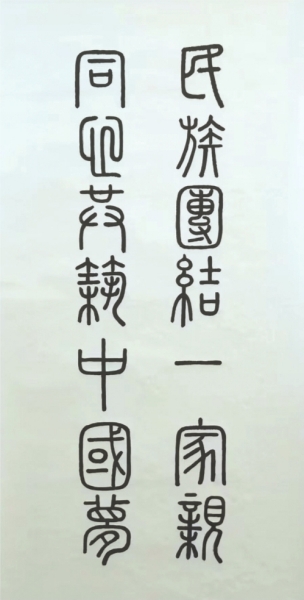 民族團結一家親
同心共築中國夢